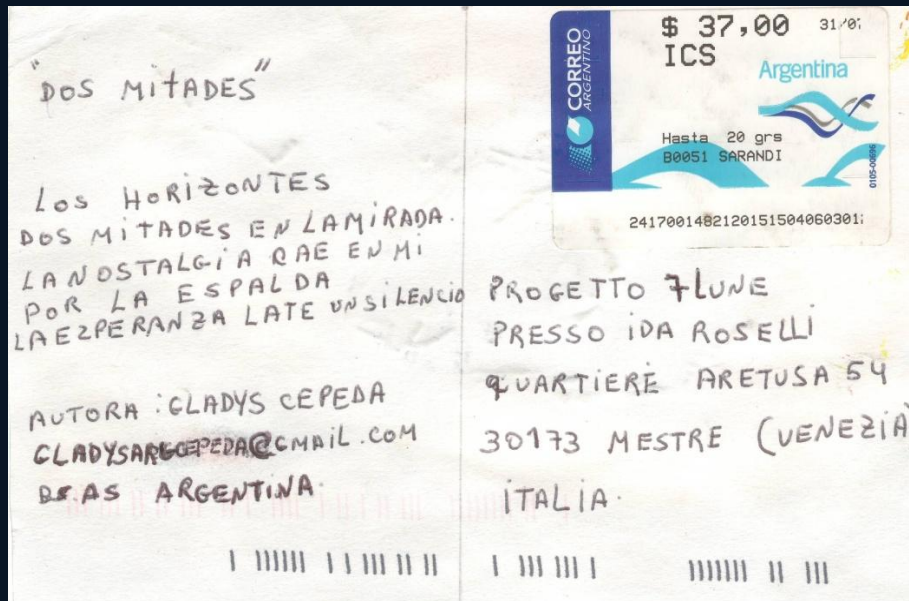 "DOS MiTADES"
LOS HORIZONTES
DOS MITADES EN LAMIRADA.
LA NOSTALGIA CAE EN MI
POR LA ESPALDA
LA EZPERANZA LATE UN SILENCIO
AUTORA: GLADYS CEPEDA
GLADYSARGCEPEDA@GMAIL.COM
BS.AS ARGENTINA.
CORREO
ARGENTINO
$ 37,00 31/07
ICS
Argentina
Hasta 20 grs
B0051 SARANDI
0105-00696
2417001482120151504060301
PROGETTO 7 LUNE
PRESSO IDA ROSELLI
QUARTIERE ARETUSA 54
30173 MESTRE (VENEZIA)
ITALIA.